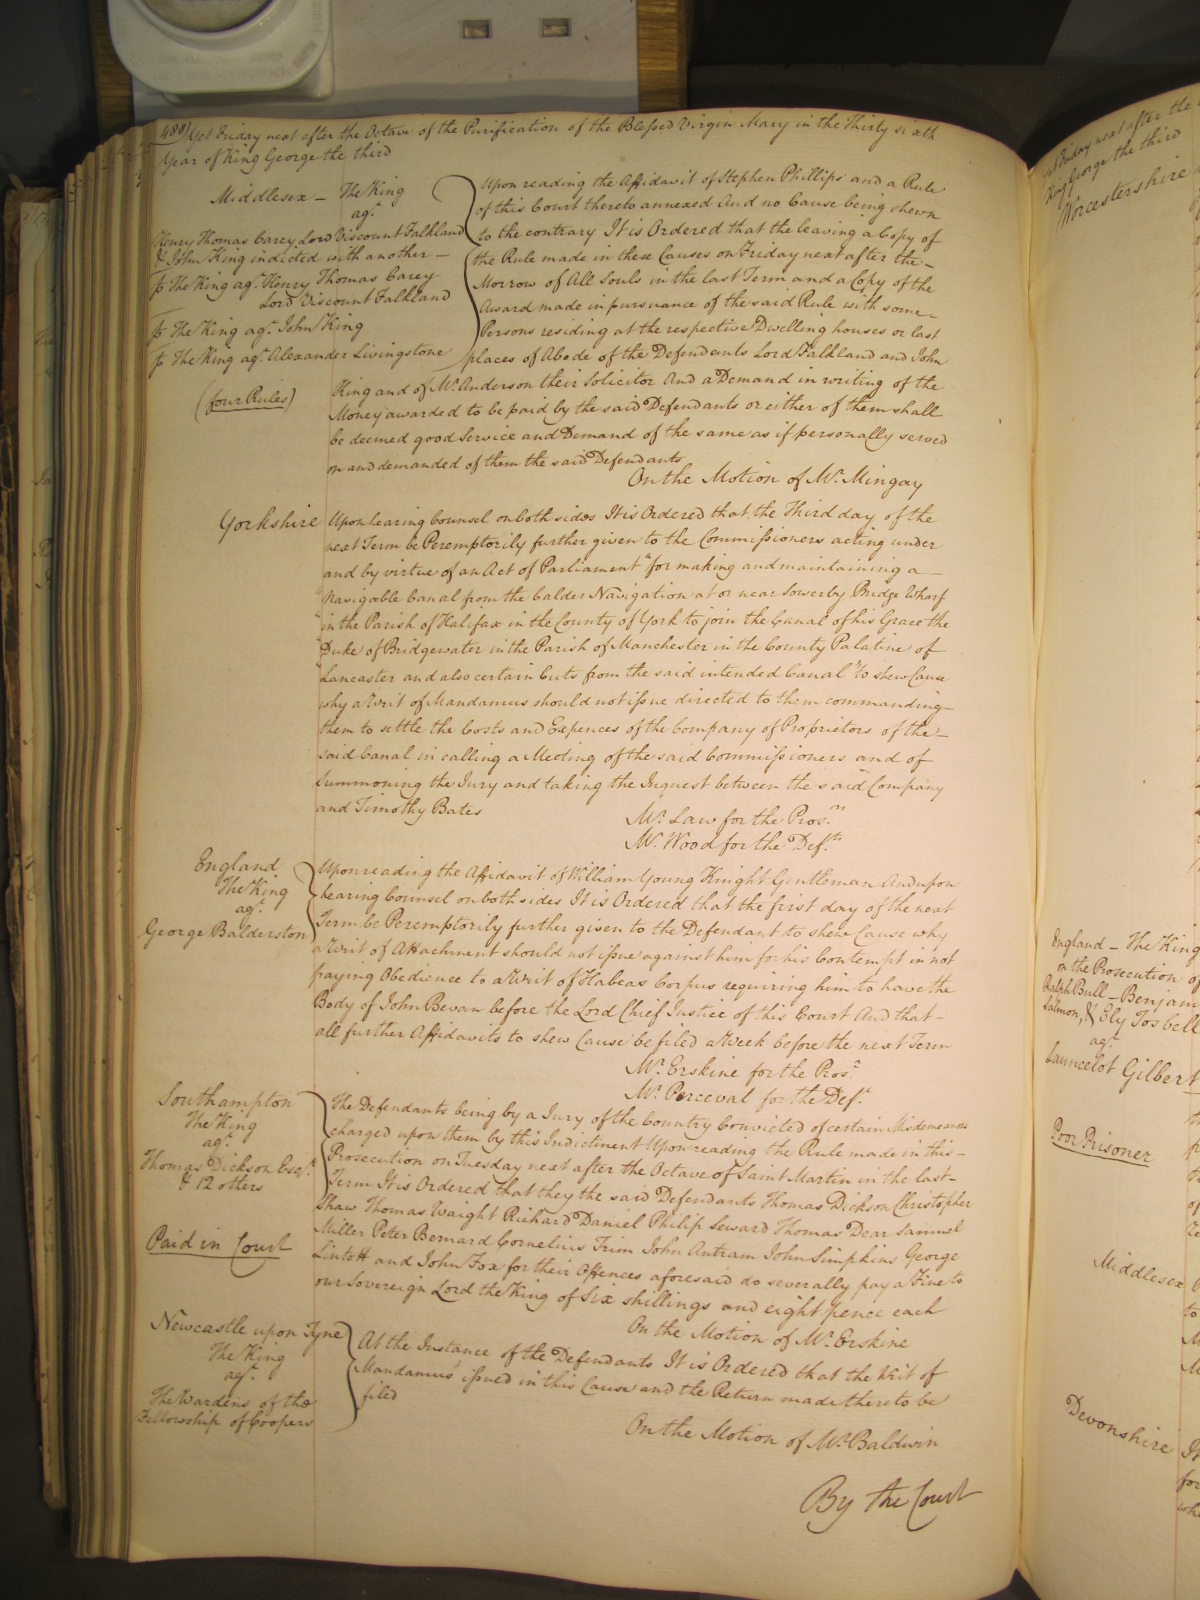 488) Yet Friday next after the Octave of the Purification of the Blessed Virgin Mary in the Thirty sixth
Year of King George the third
Middlesex – The King
agt.
Henry Thomas Carey Lord Viscount Falkland
& John King indicted with another –
The King agt. Henry Thomas Carey
Lord Viscount Falkland
The King agt. John King
The King agt. Alexander Livingstone
(four Rules)
Upon reading the Affidavit of Stephen Phillips and a Rule
of this Court thereto annexed And no Cause being shewn
to the contrary It is Ordered that the leaving a Copy of
the Rule made in these Causes on Friday next after the –
Morrow of All Souls in the last Term and a Copy of the
Award made in pursuance of the said Rule with some –
Persons residing at the respective Dwelling houses or last
places of Abode of the Defendants Lord Falkland and John
King and of Mr. Anderson their Solicitor And a Demand in writing of the
Money awarded to be paid by the said Defendants or either of them shall
be deemed good Service and Demand of the same as if personally served
on and demanded of them the said Defendants
On the Motion of Mr. Mingay
Yorkshire
Upon hearing Counsel on both sides It is Ordered that the Third day of the
next Term be Peremptorily further given to the Commissioners acting under
and by virtue of an Act of Parliament "for making and maintaining a –
"Navigable Canal from the Calder Navigation at or near Sowerby Bridge Wharf
"in the Parish of Halifax in the County of York to join the Canal of his Grace the
"Duke of Bridgewater in the Parish of Manchester in the County Palatine of
"Lancaster and also certain Cuts from the said intended Canal" to shew Cause
why a Writ of Mandamus should not issue directed to them commanding –
them to settle the Costs and Expences of the Company of Proprietors of the –
said Canal in calling a Meeting of the said Commissioners and of
Summoning the Jury and taking the Inquest between the said Company
and Timothy Bates
Mr. Law for the Prosrs.
Mr. Wood for the Defts.
England
The King
agt.
George Balderston
Upon reading the Affidavit of William Young Knight Gentleman And upon
hearing Counsel on both sides It is Ordered that the first day of the next
Term be Peremptorily further given to the Defendant to shew Cause why
a Writ of Attachment should not issue against him for his Contempt in not
paying Obedience to a Writ of Habeas Corpus requiring him to have the
Body of John Bevan before the Lord Chief Justice of this Court And that –
all further Affidavits to shew Cause be filed a Week before the next Term
Mr. Erskine for the Prosr.
Mr. Perceval for the Deft.
Southampton
The King
agt.
Thomas Dickson Esqr.
& 12 others
Paid in Court
The Defendants being by a Jury of the Country Convicted of certain Misdemeanors
charged upon them by this Indictment Upon reading the Rule made in this –
Prosecution on Tuesday next after the Octave of Saint Martin in the last –
Term It is Ordered that they the said Defendants Thomas Dickson Christopher
Shaw Thomas Waight Richard Daniel Philip Seward Thomas Dear Samuel
Miller Peter Bernard Cornelius Trim John Antram John Simpkins George
Lintott and John Fox for their Offences aforesaid do severally pay a Fine to
our Sovereign Lord the King of Six shillings and eight pence each
On the Motion of Mr. Erskine
Newcastle upon Tyne
The King
agt.
The Wardens of the
Fellowship of Coopers
At the Instance of the Defendants It is Ordered that the Writ of
Mandamus issued in this Cause and the Return made thereto be
filed
On the Motion of Mr. Baldwin
By the Court
Yet Friday next after the
King George the third
Worcestershire
England – The King
on the Prosecution of
Ralph Bull – Benjam
Salmon, & Ely Tosbell
agt.
Launcelot Gilbert
Poor Prisoner
Middlesex
Devonshire